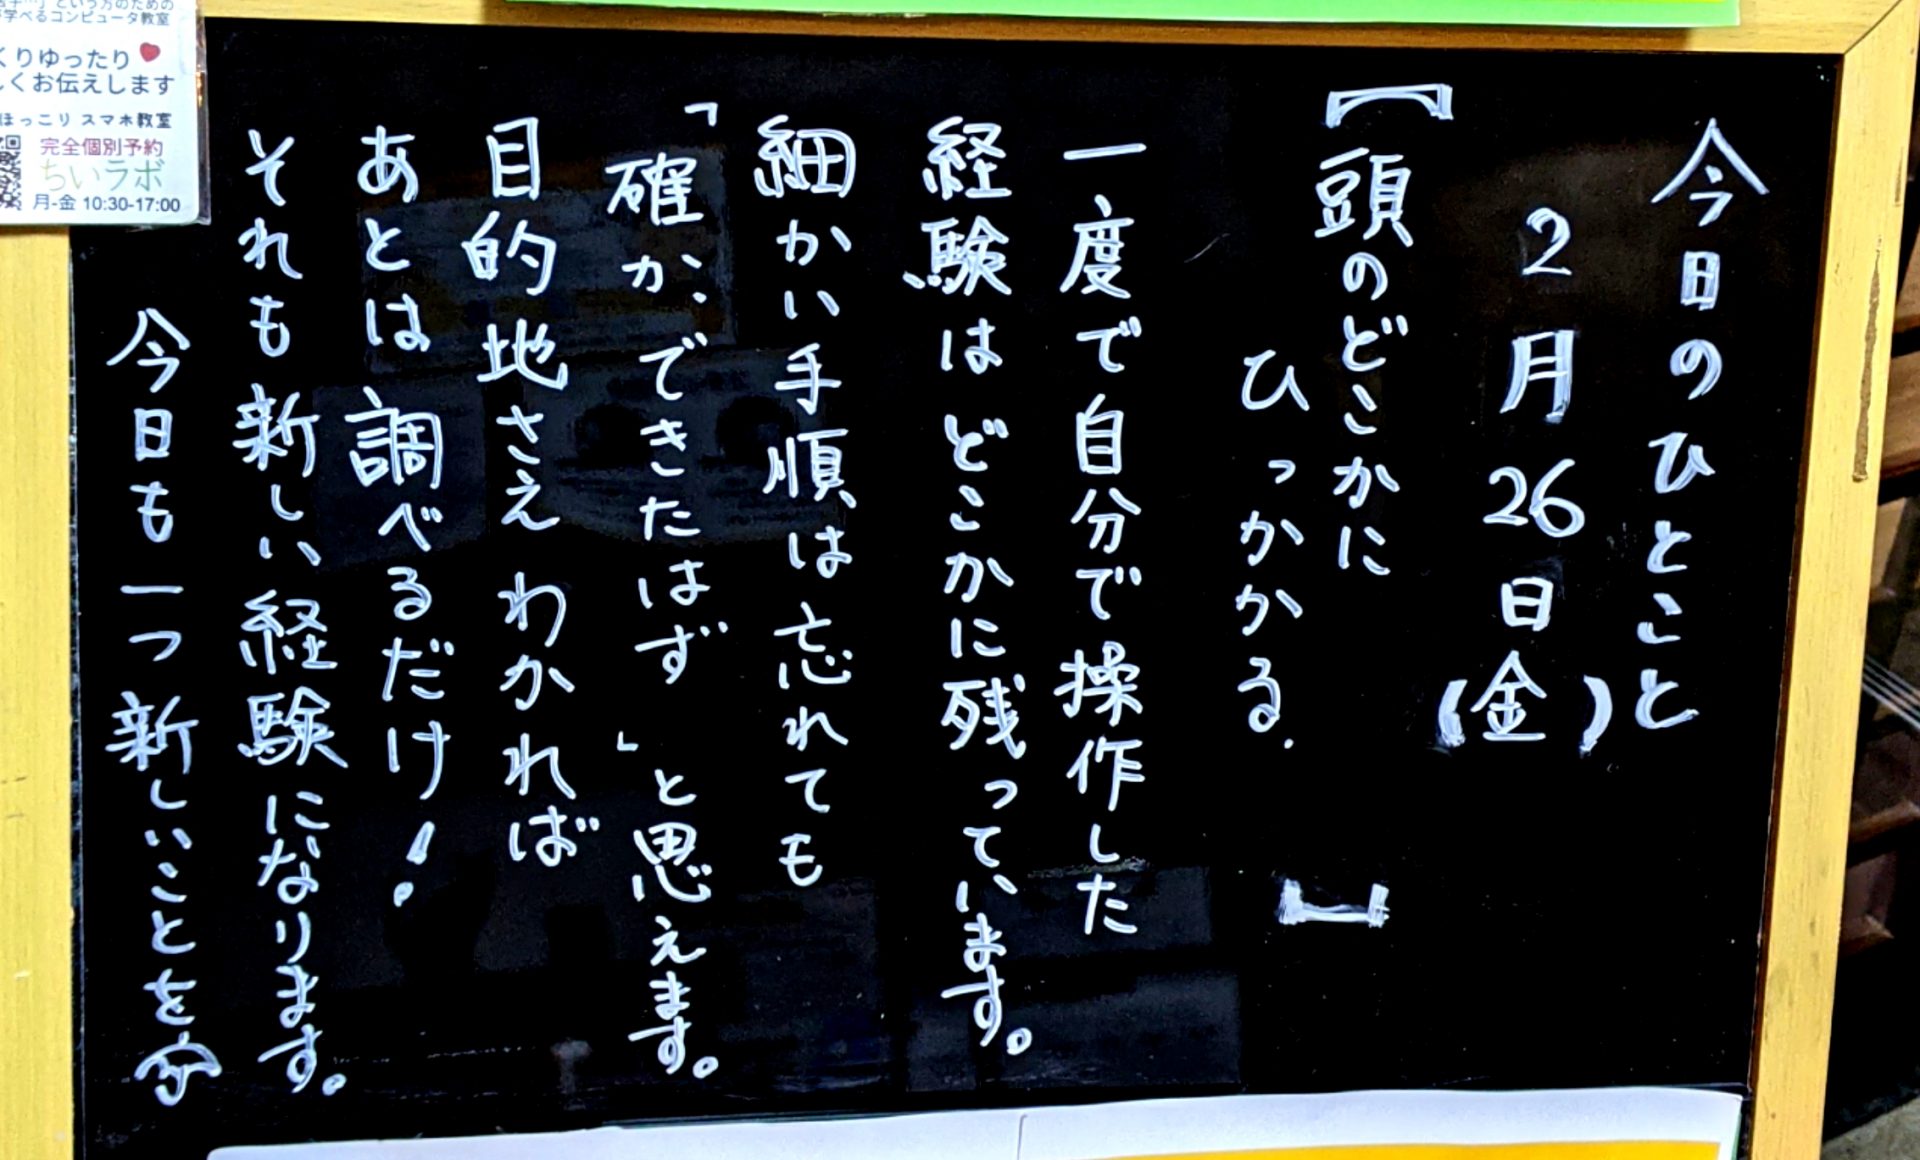 今日のひとこと
2月26日(金)
【頭のどこかに
ひっかかる.】
一度で自分で操作した
経験はどこかに残っています。
細かい手順は忘れても
「確か、できたはず」と思えます。
目的地さえわかれば
あとは調べるだけ!
それも新しい経験になります。
今日も一つ新しいことを
という方のための
学べるコンピュータ教室
くりゆったり
しくお伝えします
ほっこり スマホ教室
完全個別予約
ちいラボ
月-金 10:30-17:00